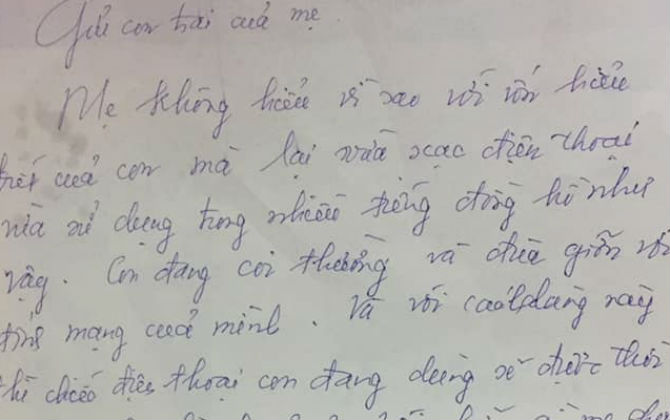 Gửi con trai của mẹ.
Mẹ không hiểu vì sao với vốn hiểu
biết của con mà lại vừa sạc điện thoại
vừa sử dụng trong nhiều tiếng đồng hồ như
vậy. Con đang coi thường và đùa giỡn với
tính mạng của mình. Và với cách dùng này
thì chiếc điện thoại con đang dùng sẽ được thời